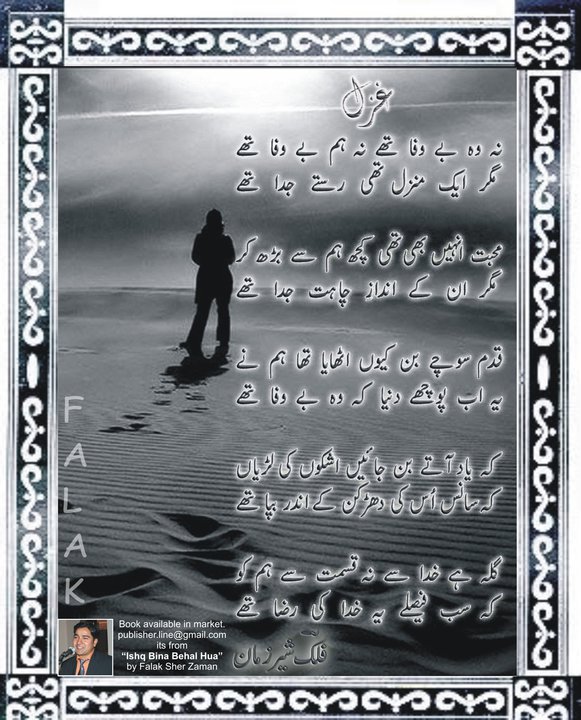 غزل
نہ وہ بے وفا تھے نہ ہم بے وفا تھے
مگر ایک منزل تھی رستے جدا تھے
محبت انہیں بھی تھی کچھ ہم سے بڑھ کر
مگر ان کے اندازِ چاہت جدا تھے
قدم سوچے بن کیوں اٹھایا تھا ہم نے
یہ اب پوچھے دنیا کہ وہ بے وفا تھے
کہ یاد آتے بن جائیں اشکوں کی لڑیاں
کہ سانس اُس کی دھڑکن کے اندر بپا تھے
گلہ ہے خدا سے نہ قسمت سے ہم کو
کہ سب فیصلے یہ خدا کی رضا تھے
فلک شیر زمان
FALAK
Book available in market.
publisher.line@gmail.com
its from
“Ishq Bina Behal Hua”
by Falak Sher Zaman